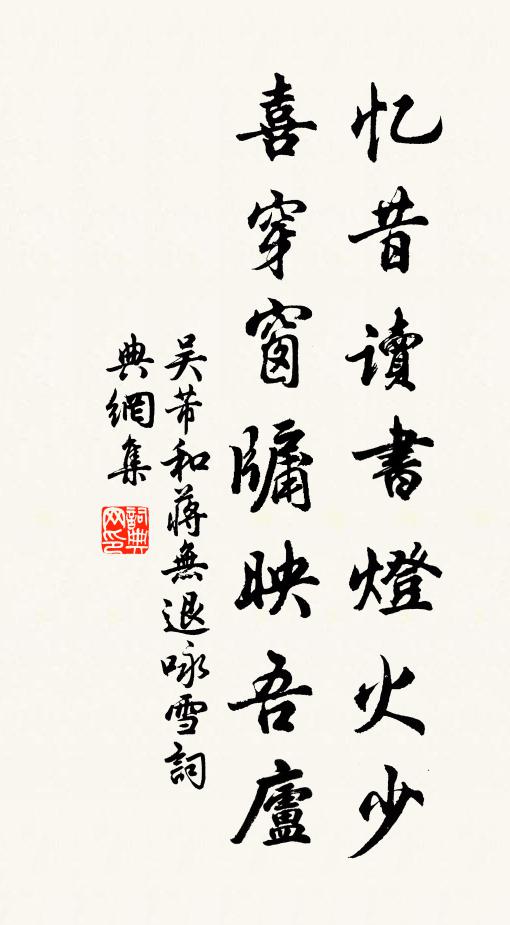 忆昔读書燈火少
喜穿窗牖映吾廬
吴芾和蔣無退咏雪詞
典網集
詞典
网印